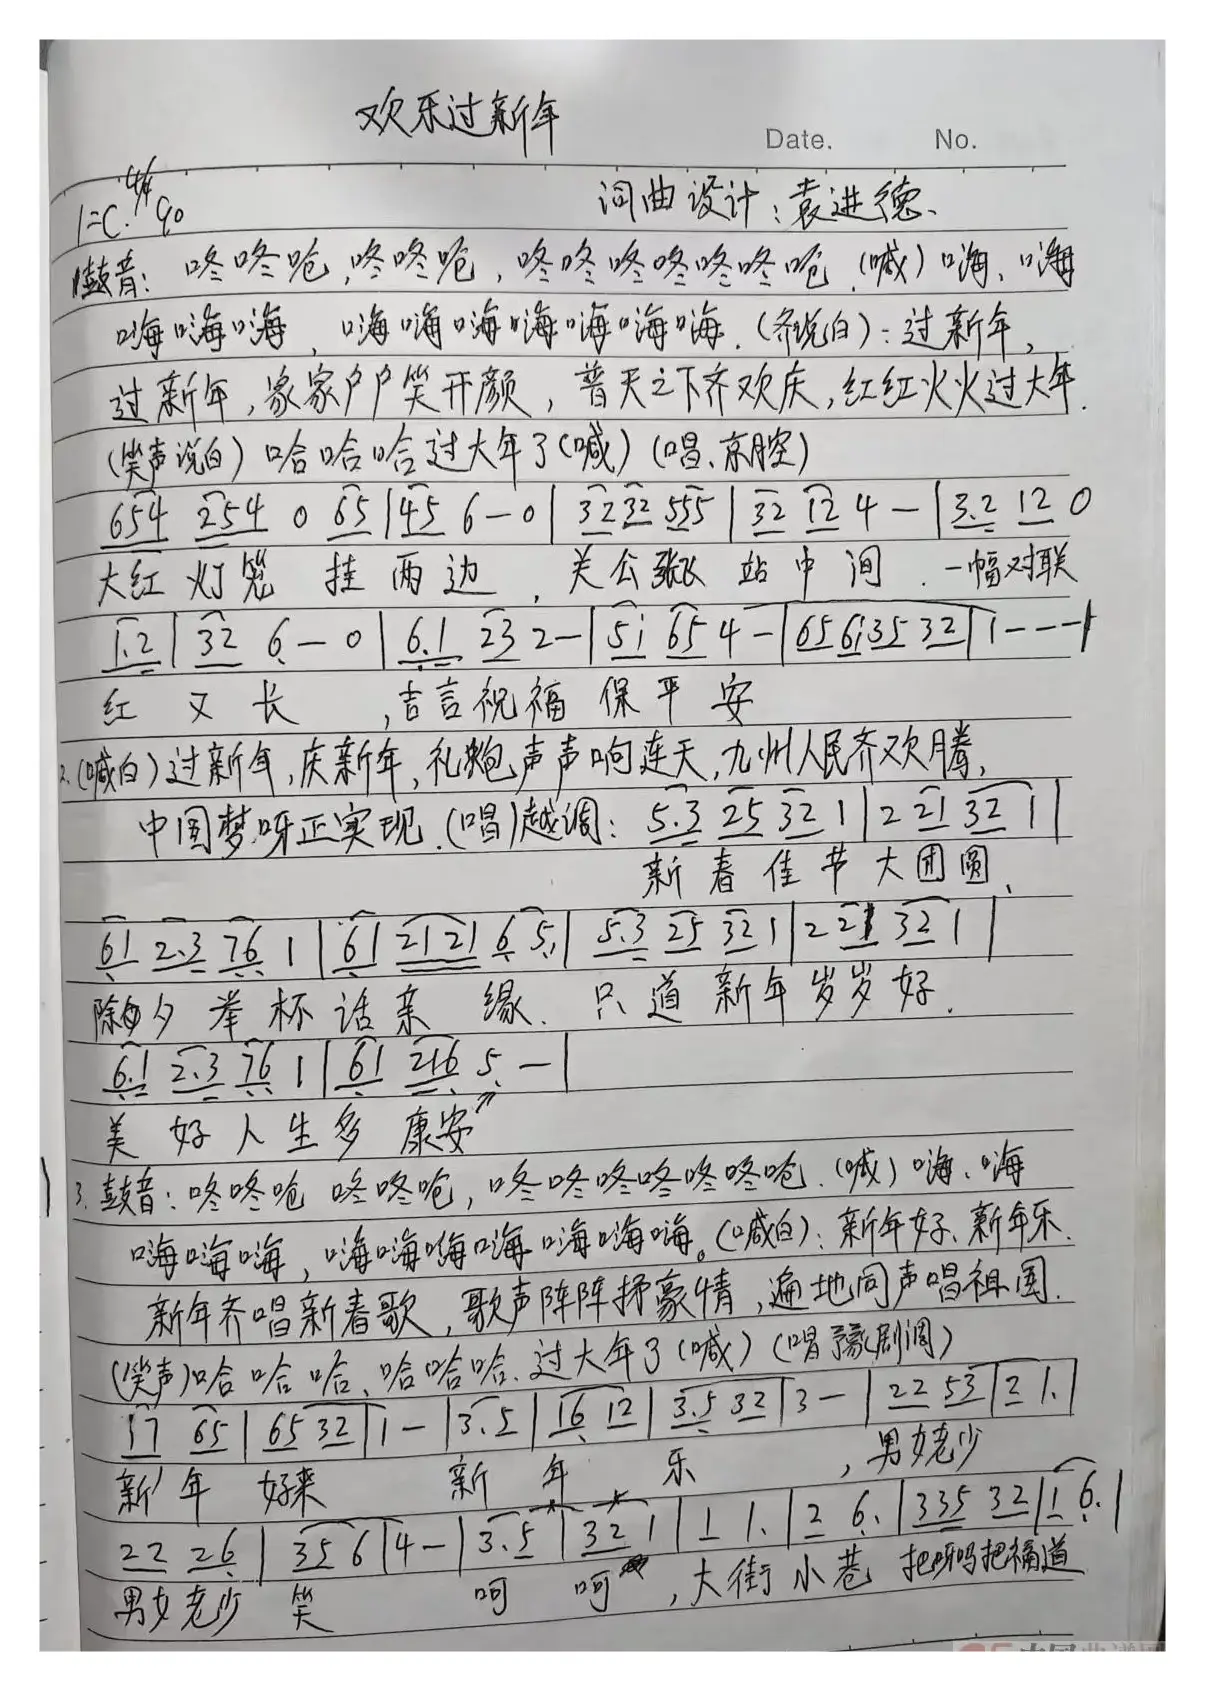 欢乐过新年
Date. No.
1=C. 4/4 90 词曲设计：袁进德、
1鼓音：咚咚呛，咚咚呛，咚咚咚咚咚咚呛.(喊)嗨、嗨
嗨嗨嗨，嗨嗨嗨嗨嗨嗨嗨.(齐说白)：过新年，
过新年，家家户户笑开颜，普天之下齐欢庆，红红火火过大年.
(笑声说白)哈哈哈过大年了(喊)(唱、京腔)
654 254 0 65|45 6-0|3232 555|32 12 4-|3.2 12 0
大红灯笼 挂两边，关公张飞站中间.一幅对联
1.2|32 6-0|6.1 23 2-|5i 65 4-|65 6i35 32|1---|
红又长，吉言祝福保平安
2.(喊白)过新年，庆新年，礼炮声声响连天，九州人民齐欢腾，
中国梦呀正实现.(唱)越调：5.3 25 32 1|2 21 32 1|
新春佳节大团圆、
61 2.3 76 1|61 2121 6 5.|5.3 25 32 1|2 21 32 1|
除夕举杯话亲缘、只道新年岁岁好.
6.1 2.3 76 1|61 216 5-|
美好人生多康安
3.鼓音：咚咚呛 咚咚呛，咚咚咚咚咚咚呛.(喊)嗨、嗨
嗨嗨嗨，嗨嗨嗨嗨嗨嗨嗨。(喊白)：新年好、新年乐.
新年齐唱新春歌，歌声阵阵抒豪情，遍地同声唱祖国.
(笑声)哈哈哈、哈哈哈.过大年了(喊)(唱豫剧调)
17 65|65 32|1-|3.5|16 12|3.5 32|3-|22 53|2 1.|
新年好来 新年乐，男女老少
22 26|35 6|4-|3.5|32 1|1 1.|2 6.|335 32|1 6.|
男女老少笑 呵呵，大街小巷 把呀吗把福道